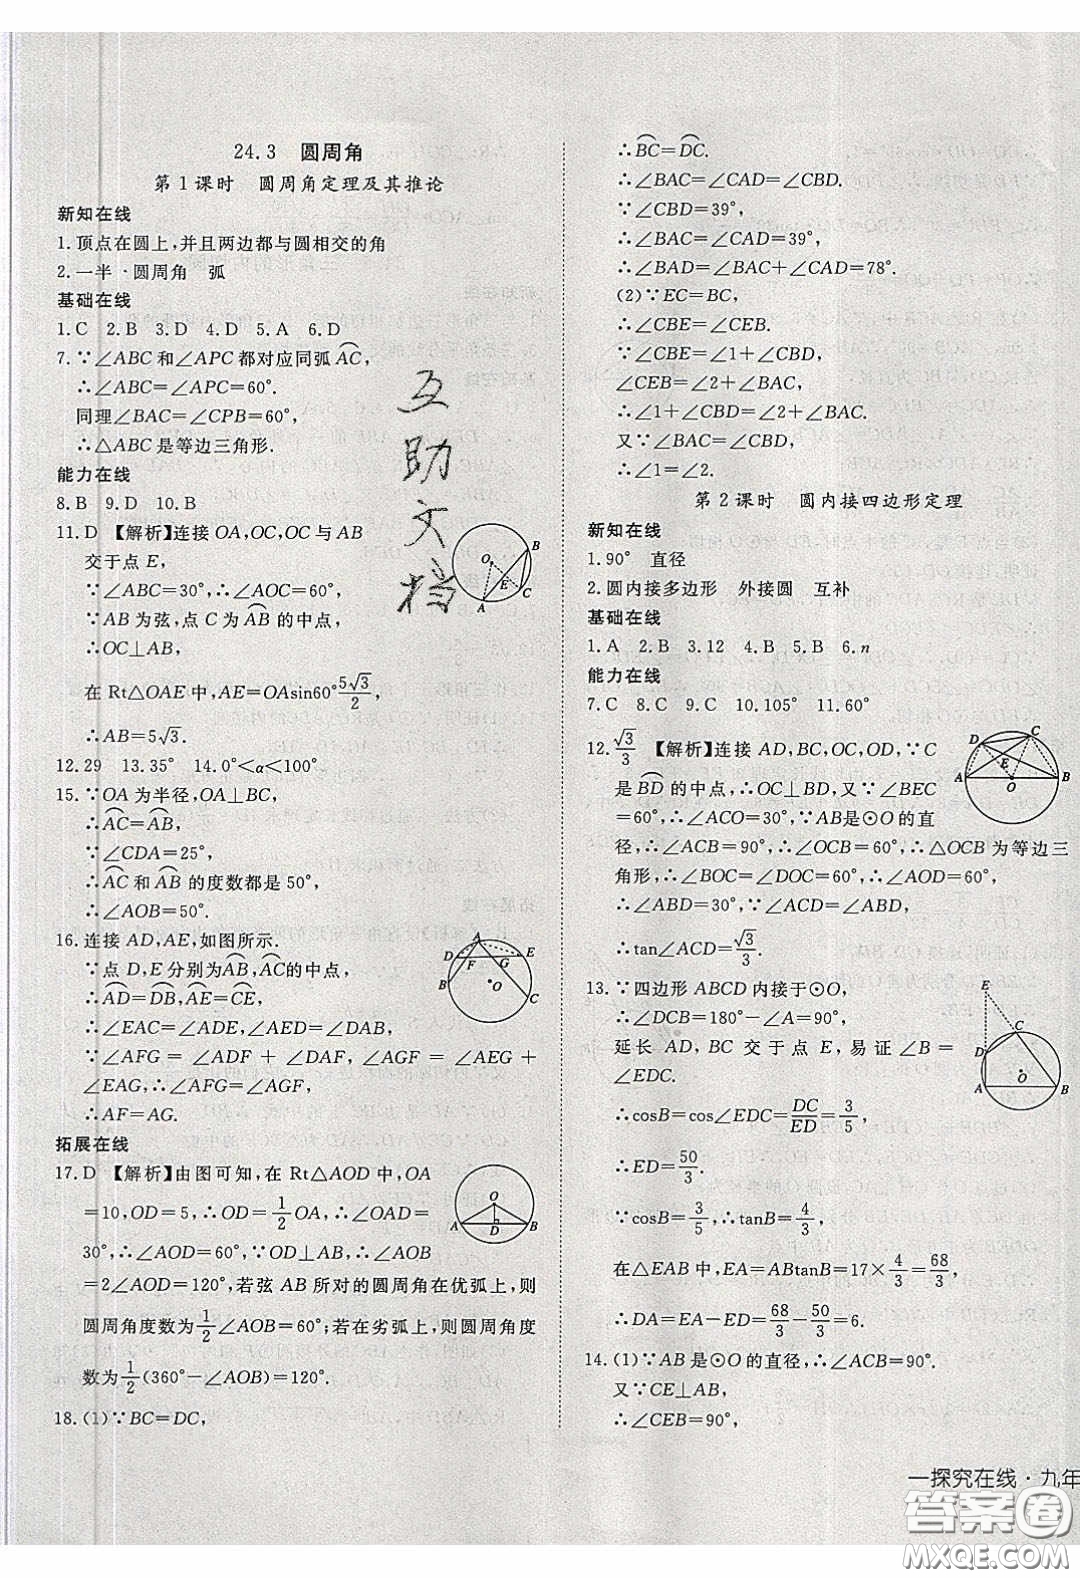 24.3 圆周角
第1课时 圆周角定理及其推论
新知在线
1.顶点在圆上,并且两边都与圆相交的角
2.一半·圆周角 弧
基础在线
1.C 2.B 3.D 4.D 5.A 6.D
7.∵∠ABC和∠APC都对应同弧AC,
∴∠ABC=∠APC=60°.
同理∠BAC=∠CPB=60°,
∴△ABC是等边三角形.
能力在线
8.B 9.D 10.B
11.D 【解析】连接OA,OC,OC与AB
交于点E,
∵∠ABC=30°,∴∠AOC=60°,
∵AB为弦,点C为AB的中点,
∴OC⊥AB,
在Rt△OAE中,AE=OAsin60°5√3/2,
∴AB=5√3.
12.29 13.35° 14.0°<α<100°
15.∵OA为半径,OA⊥BC,
∴AC=AB,
∵∠CDA=25°,
∴AC和AB的度数都是50°,
∴∠AOB=50°.
16.连接AD,AE,如图所示.
∵点D,E分别为AB,AC的中点,
∴AD=DB,AE=CE,
∴∠EAC=∠ADE,∠AED=∠DAB,
∵∠AFG=∠ADF+∠DAF,∠AGF=∠AEG+
∠EAG,∴∠AFG=∠AGF,
∴AF=AG.
拓展在线
17.D 【解析】由图可知,在Rt△AOD中,OA
=10,OD=5,∴OD=1/2OA,∴∠OAD=
30°,∴∠AOD=60°,∵OD⊥AB,∴∠AOB
=2∠AOD=120°,若弦AB所对的圆周角在优弧上,则
圆周角度数为1/2∠AOB=60°;若在劣弧上,则圆周角度
数为1/2(360°-∠AOB)=120°.
18.(1)∵BC=DC,
∴BC=DC.
∴∠BAC=∠CAD=∠CBD.
∵∠CBD=39°,
∴∠BAC=∠CAD=39°,
∴∠BAD=∠BAC+∠CAD=78°.
(2)∵EC=BC,
∴∠CBE=∠CEB.
∵∠CBE=∠1+∠CBD,
∠CEB=∠2+∠BAC,
∴∠1+∠CBD=∠2+∠BAC.
又∵∠BAC=∠CBD,
∴∠1=∠2.
第2课时 圆内接四边形定理
新知在线
1.90° 直径
2.圆内接多边形 外接圆 互补
基础在线
1.A 2.B 3.12 4.B 5.B 6.n
能力在线
7.C 8.C 9.C 10.105° 11.60°
12.√3/3 【解析】连接AD,BC,OC,OD,∵C
是BD的中点,∴OC⊥BD,又∵∠BEC
=60°,∴∠ACO=30°,∵AB是⊙O的直
径,∴∠ACB=90°,∴∠OCB=60°,∴△OCB为等边三
角形,∴∠BOC=∠BEC=60°,∴∠ACD
=∠ABD=30°,∵∠BAC=∠ACO=30°,
∴tan∠ACD=√3/3.
13.∵四边形ABCD内接于⊙O,
∴∠DCB=180°-∠A=90°,
延长AD,BC交于点E,易证∠B=
∠EDC.
∴cosB=cos∠EDC=DC/ED=3/5,
∴ED=50/3.
∵cosB=3/5,∴tanB=4/3,
在△EAB中,EA=ABtanB=17×4/3=68/3,
∴DA=EA-ED=68/3-50/3=6.
14.(1)∵AB是⊙O的直径,∴∠ACB=90°.
又∵CE⊥AB,
∴∠CEB=90°,
互
助
文
档
一探究在线·九年
答案圈
MXQE.COM